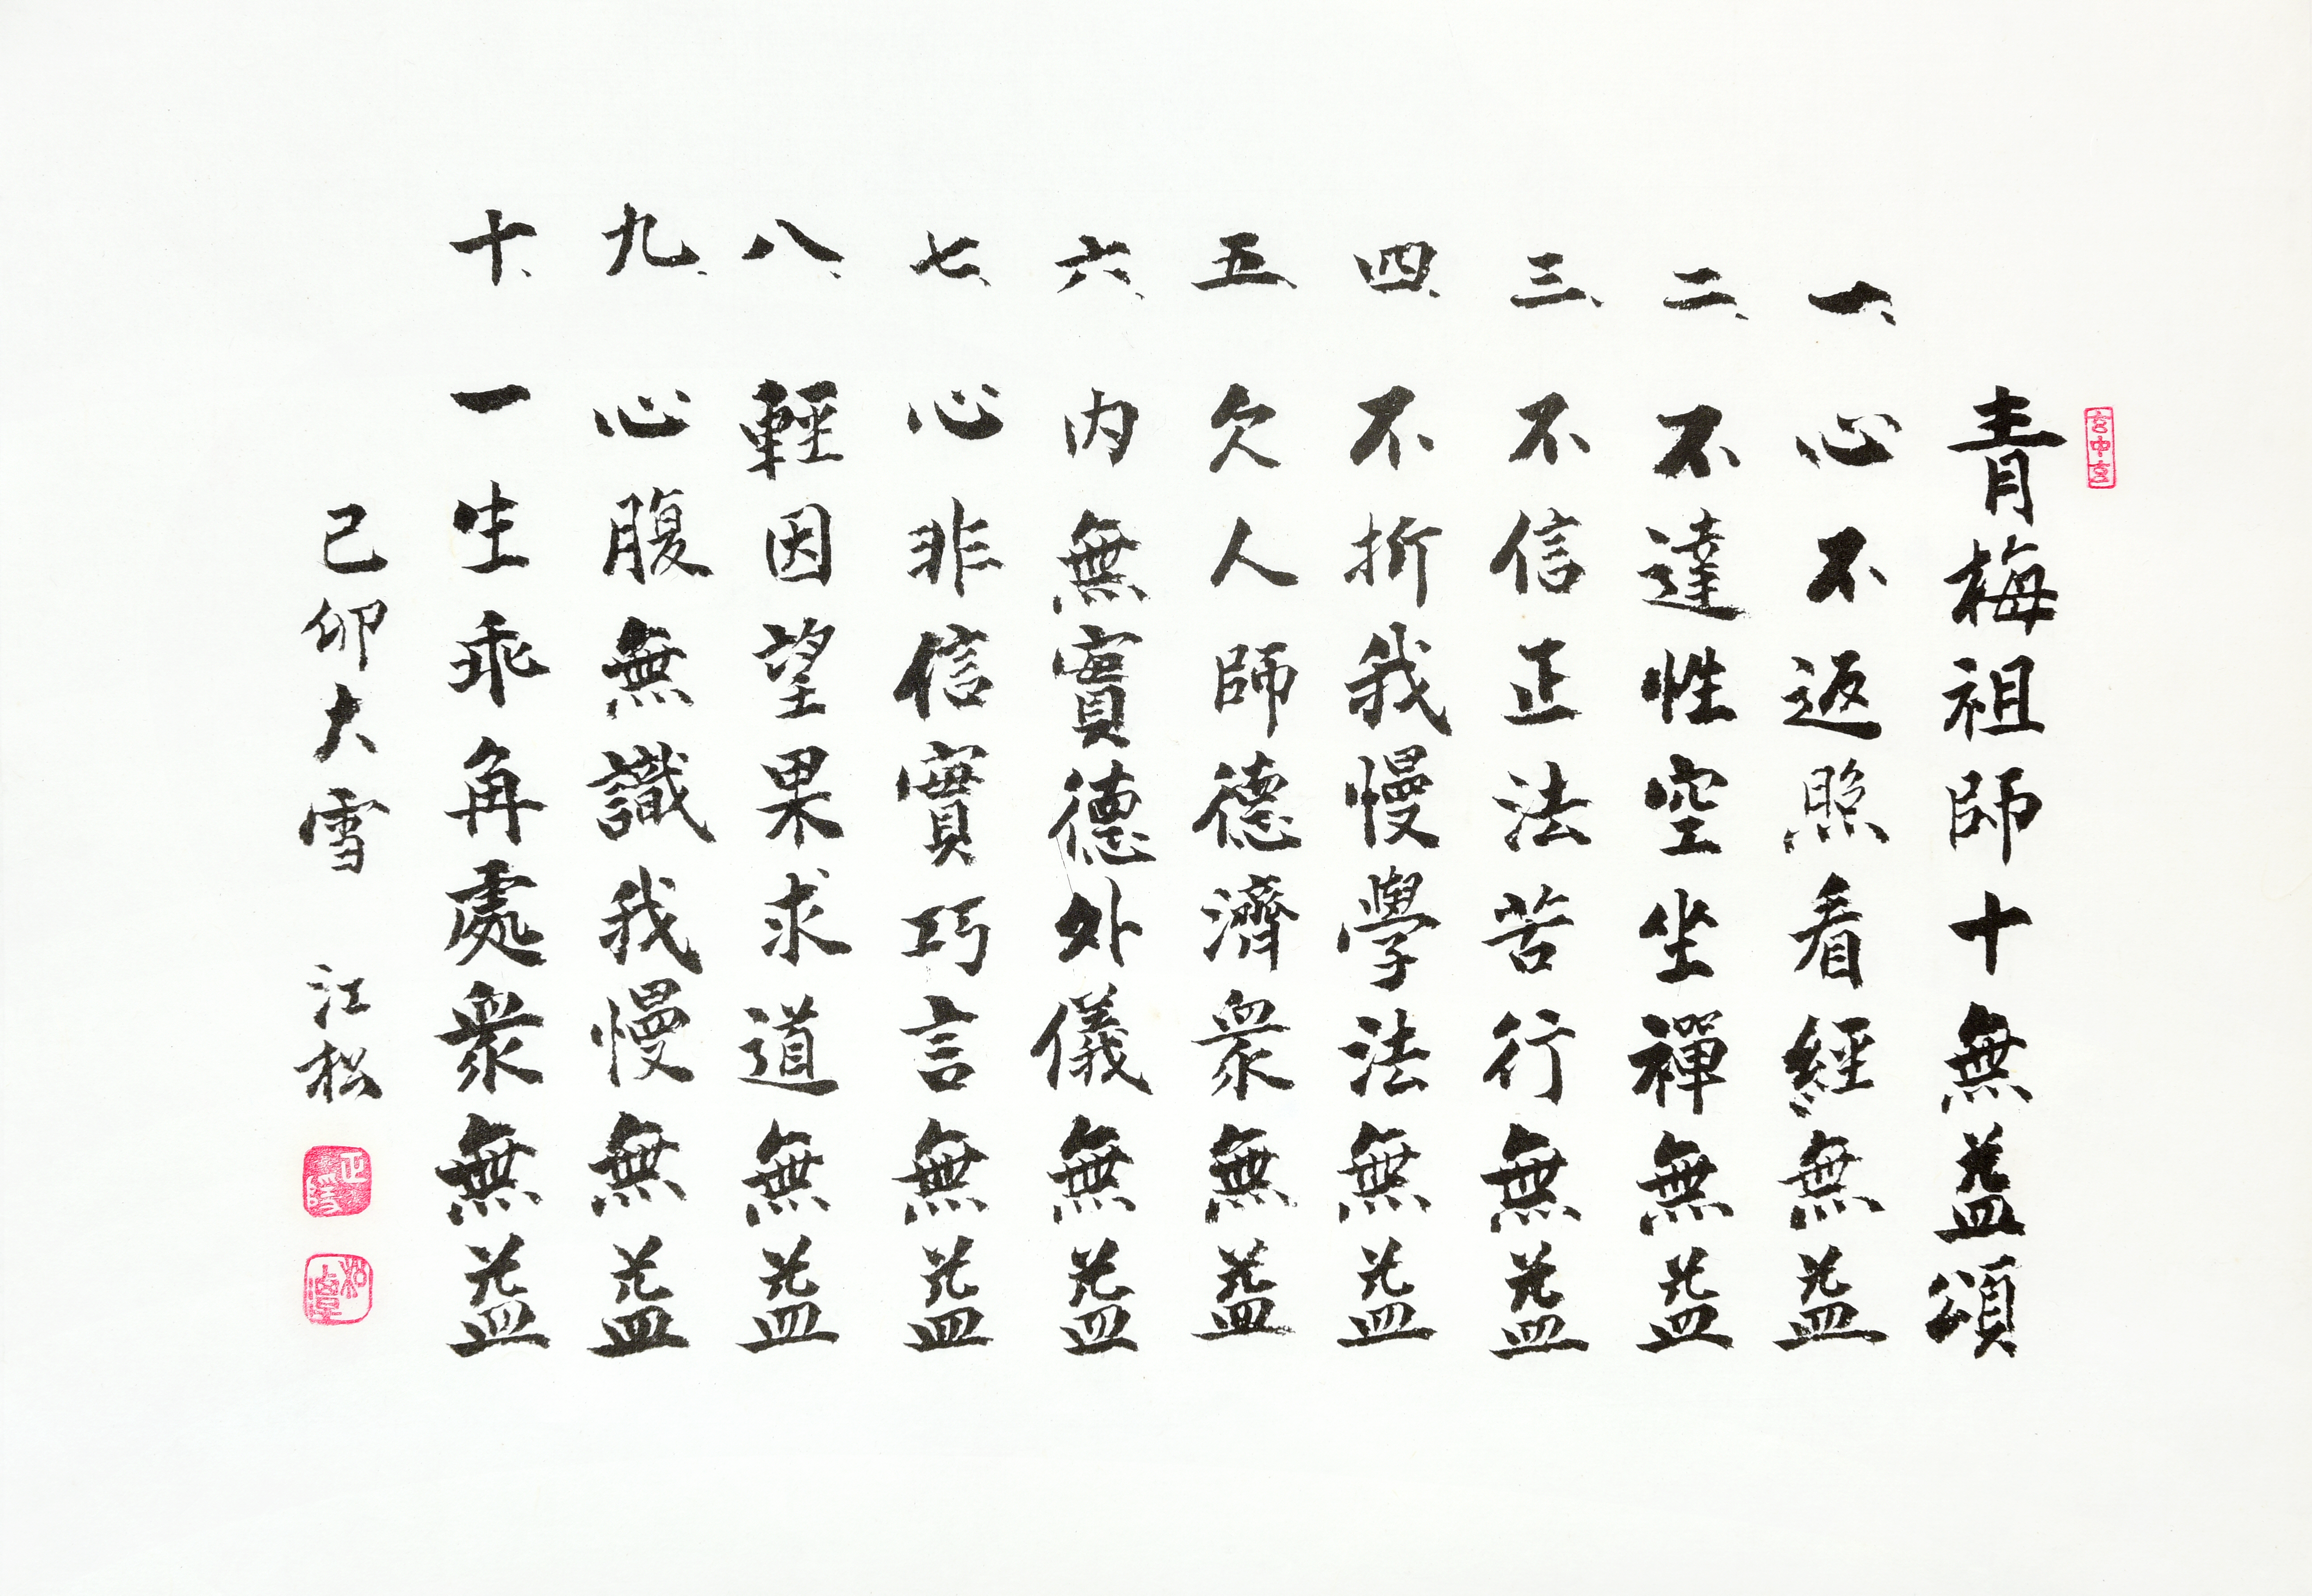 玄中玄
青梅祖師十無益頌
一、心不返照看經無益
二、不達性空坐禪無益
三、不信正法苦行無益
四、不折我慢學法無益
五、欠人師德濟衆無益
六、內無實德外儀無益
七、心非信實巧言無益
八、輕因望果求道無益
九、心腹無識我慢無益
十、一生乖角處衆無益
己卯大雪 江松